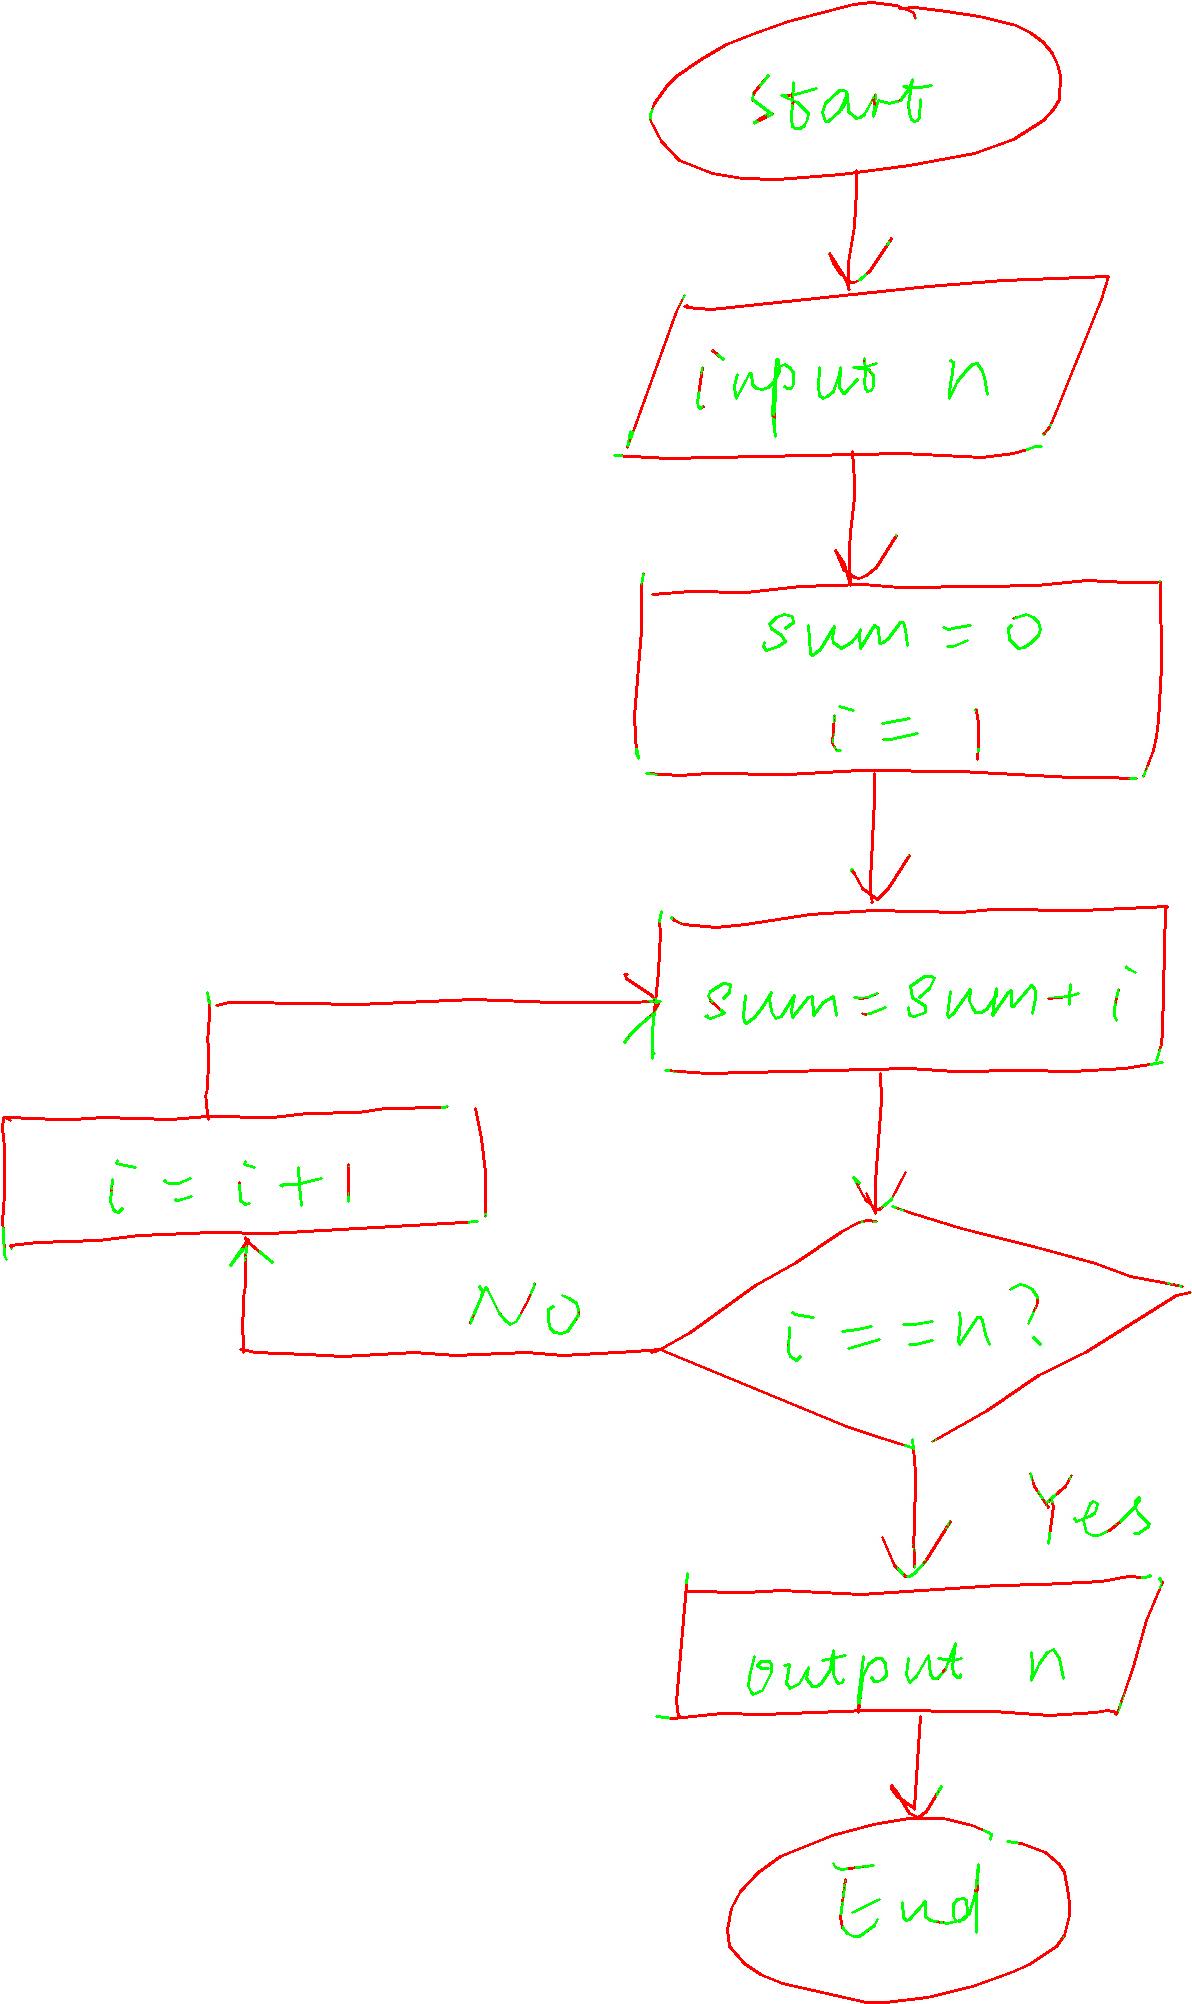 start
input n
sum = 0
i = 1
sum = sum + i
i = i + 1
No
i = = n ?
Yes
output n
End